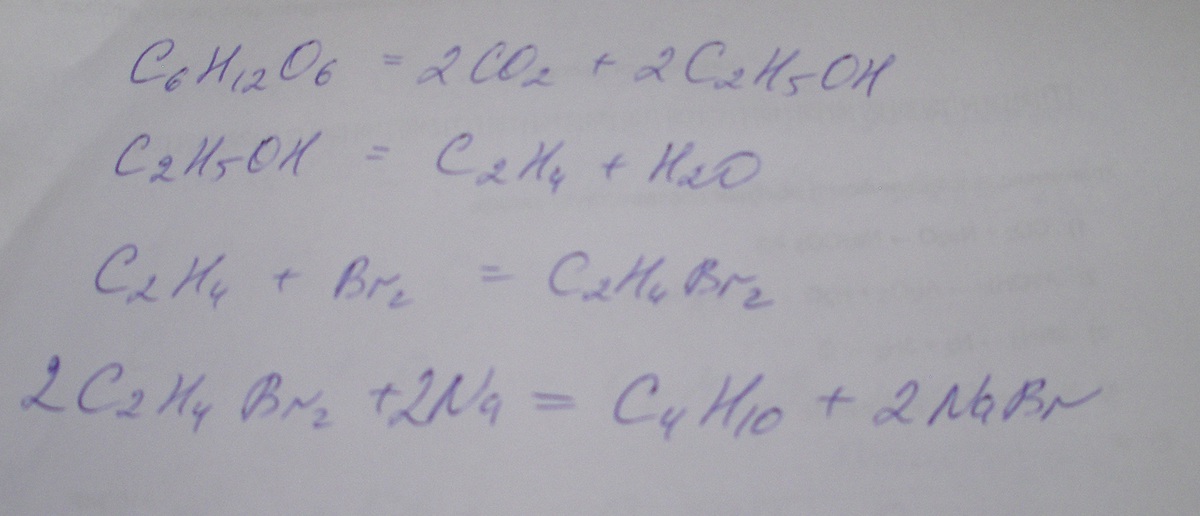 C₆H₁₂O₆ = 2CO₂ + 2C₂H₅OH
C₂H₅OH = C₂H₄ + H₂O
C₂H₄ + Br₂ = C₂H₄Br₂
2C₂H₄Br₂ + 2Na = C₄H₁₀ + 2NaBr